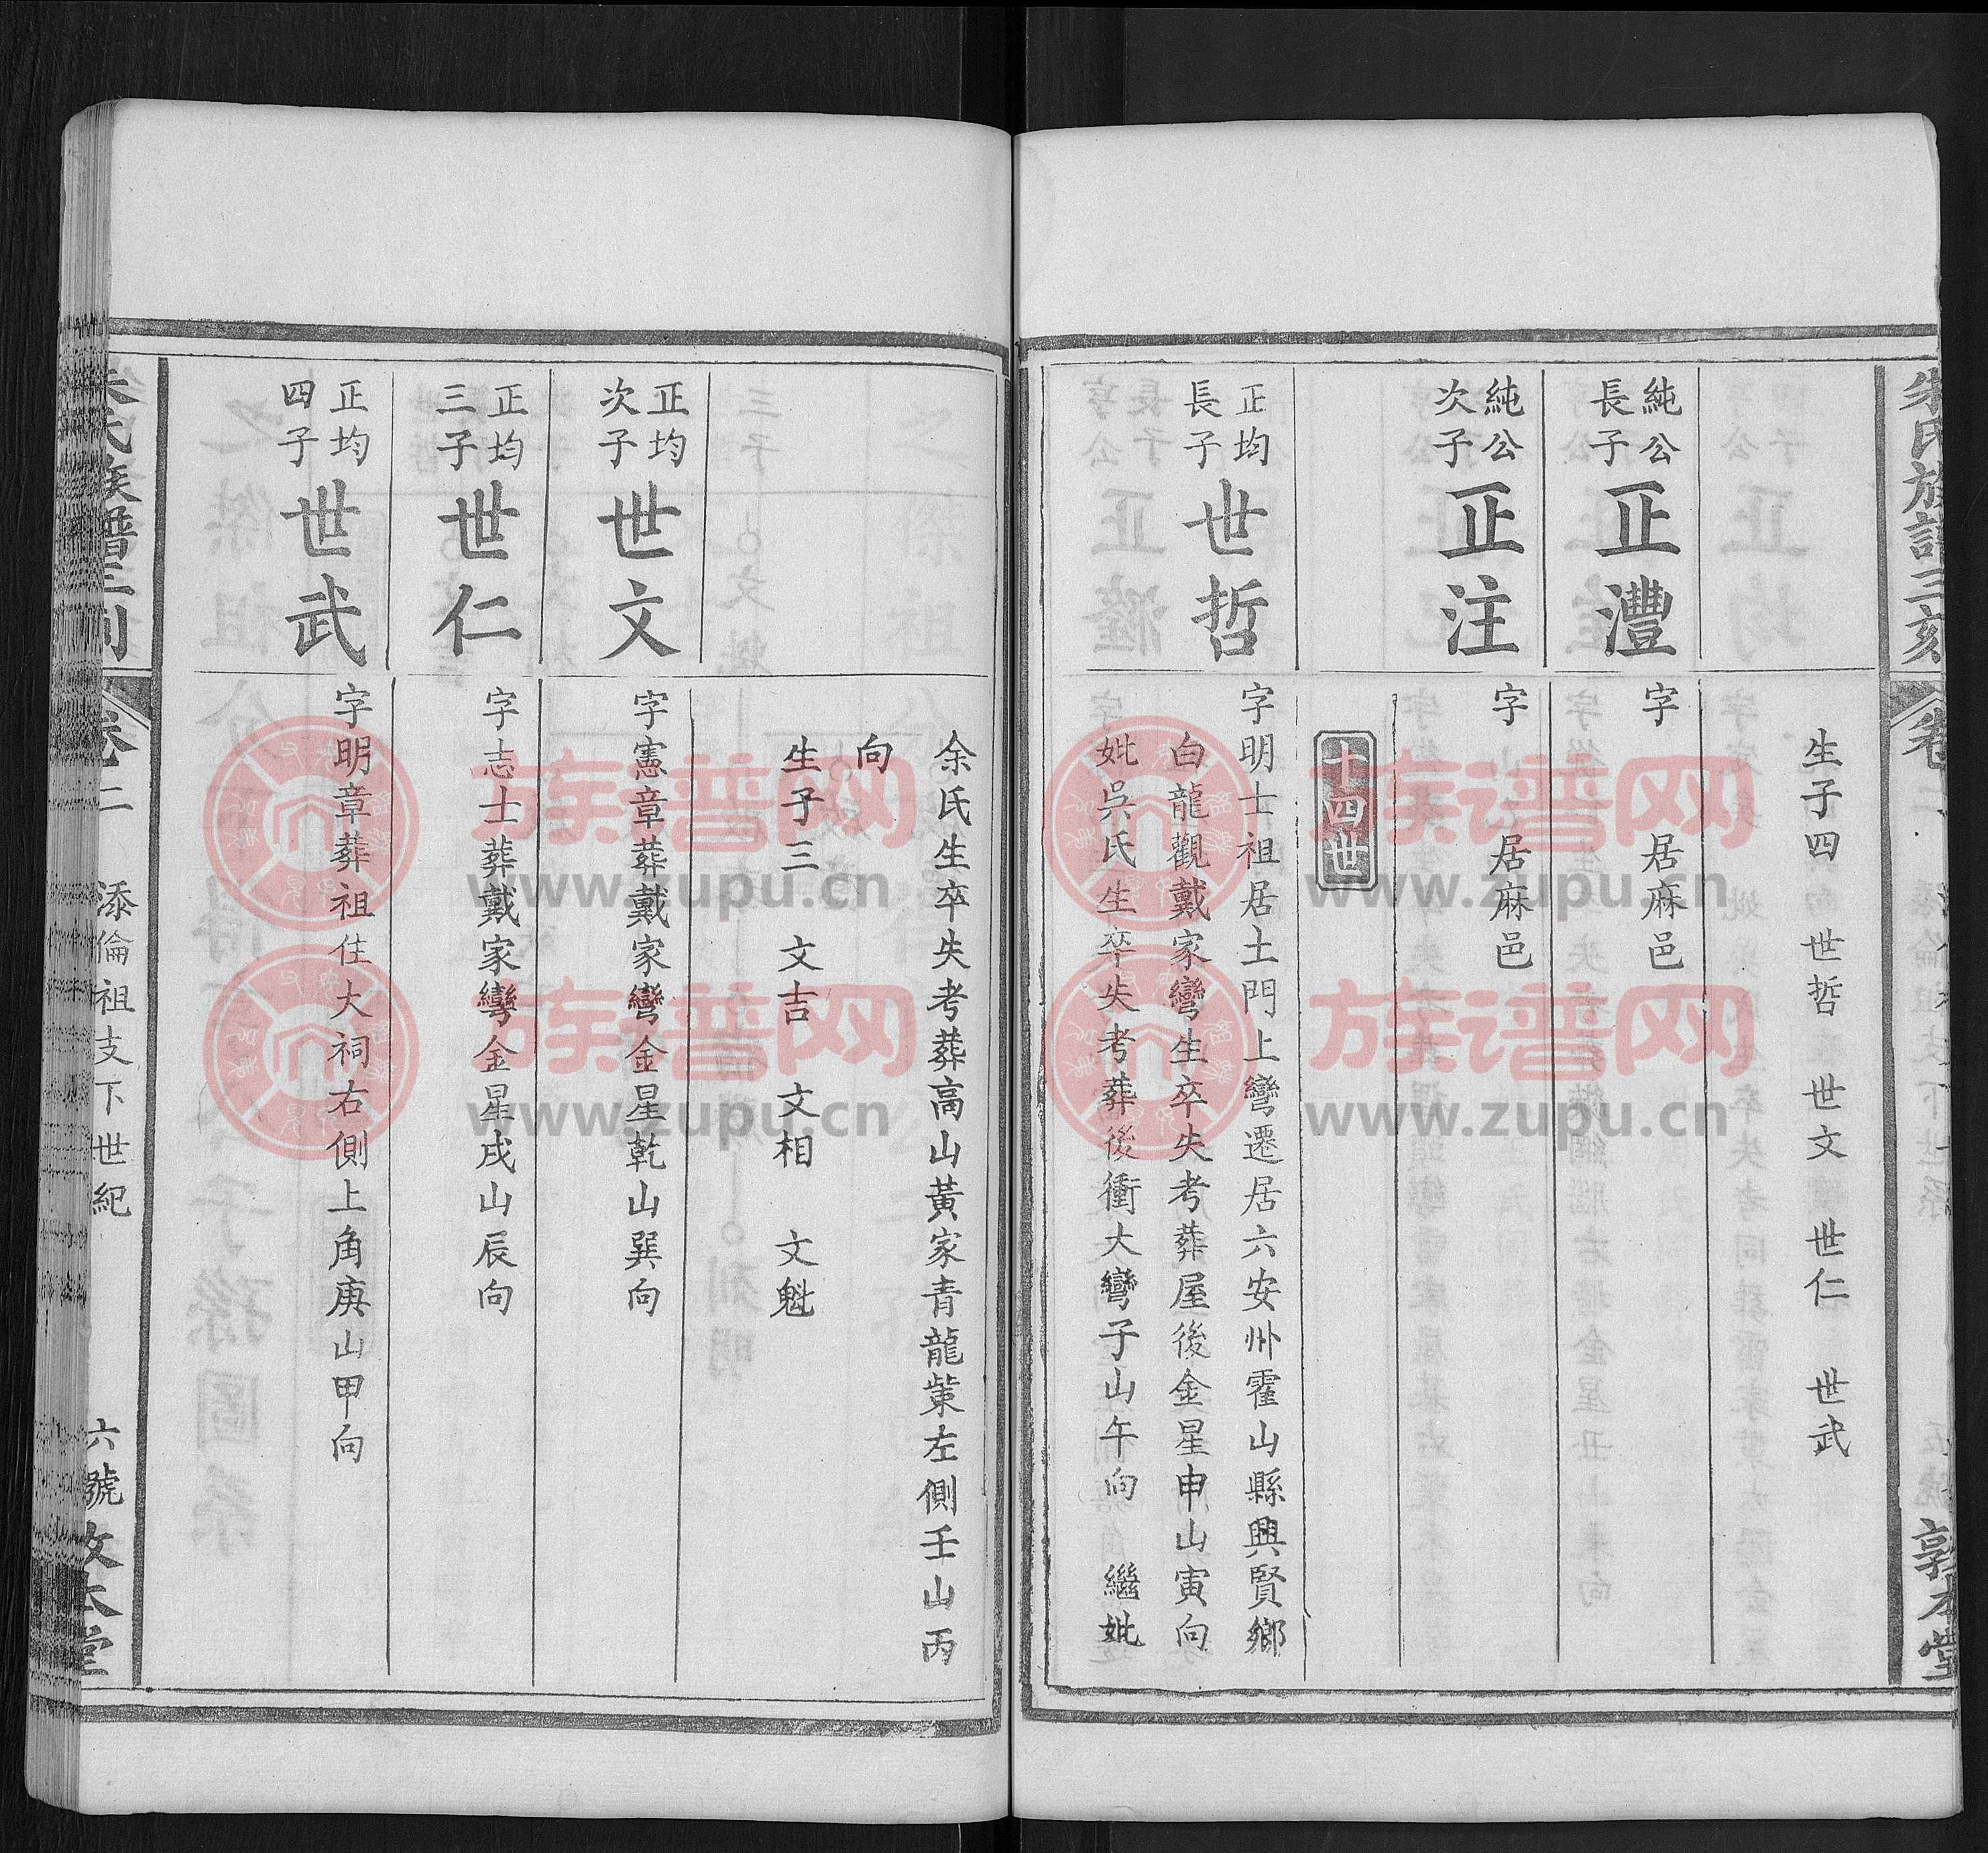 朱氏族譜三刻
卷
敦本堂
生子四 世哲 世文 世仁 世武
純公長子 正灃 字 居麻邑
純公次子 正注 字 居麻邑
十四世
正均長子 世哲 字明士祖居土門上彎遷居六安州霍山縣興賢鄉
白龍觀戴家彎生卒失考葬屋後金星申山寅向
妣吳氏生卒失考葬後衝大彎子山午向 繼妣
余氏生卒失考葬高山黃家青龍㭰左側壬山丙
向
生子三 文吉 文相 文魁
正均次子 世文 字憲章葬戴家彎金星乾山巽向
正均三子 世仁 字志士葬戴家彎金星戌山辰向
正均四子 世武 字明章葬祖住大祠右側上角庚山甲向
朱氏族譜三刻
卷二 添倫祖支下世紀
六號 敦本堂
族谱网
www.zupu.cn
族谱网
www.zupu.cn
族谱网
www.zupu.cn
族谱网
www.zupu.cn